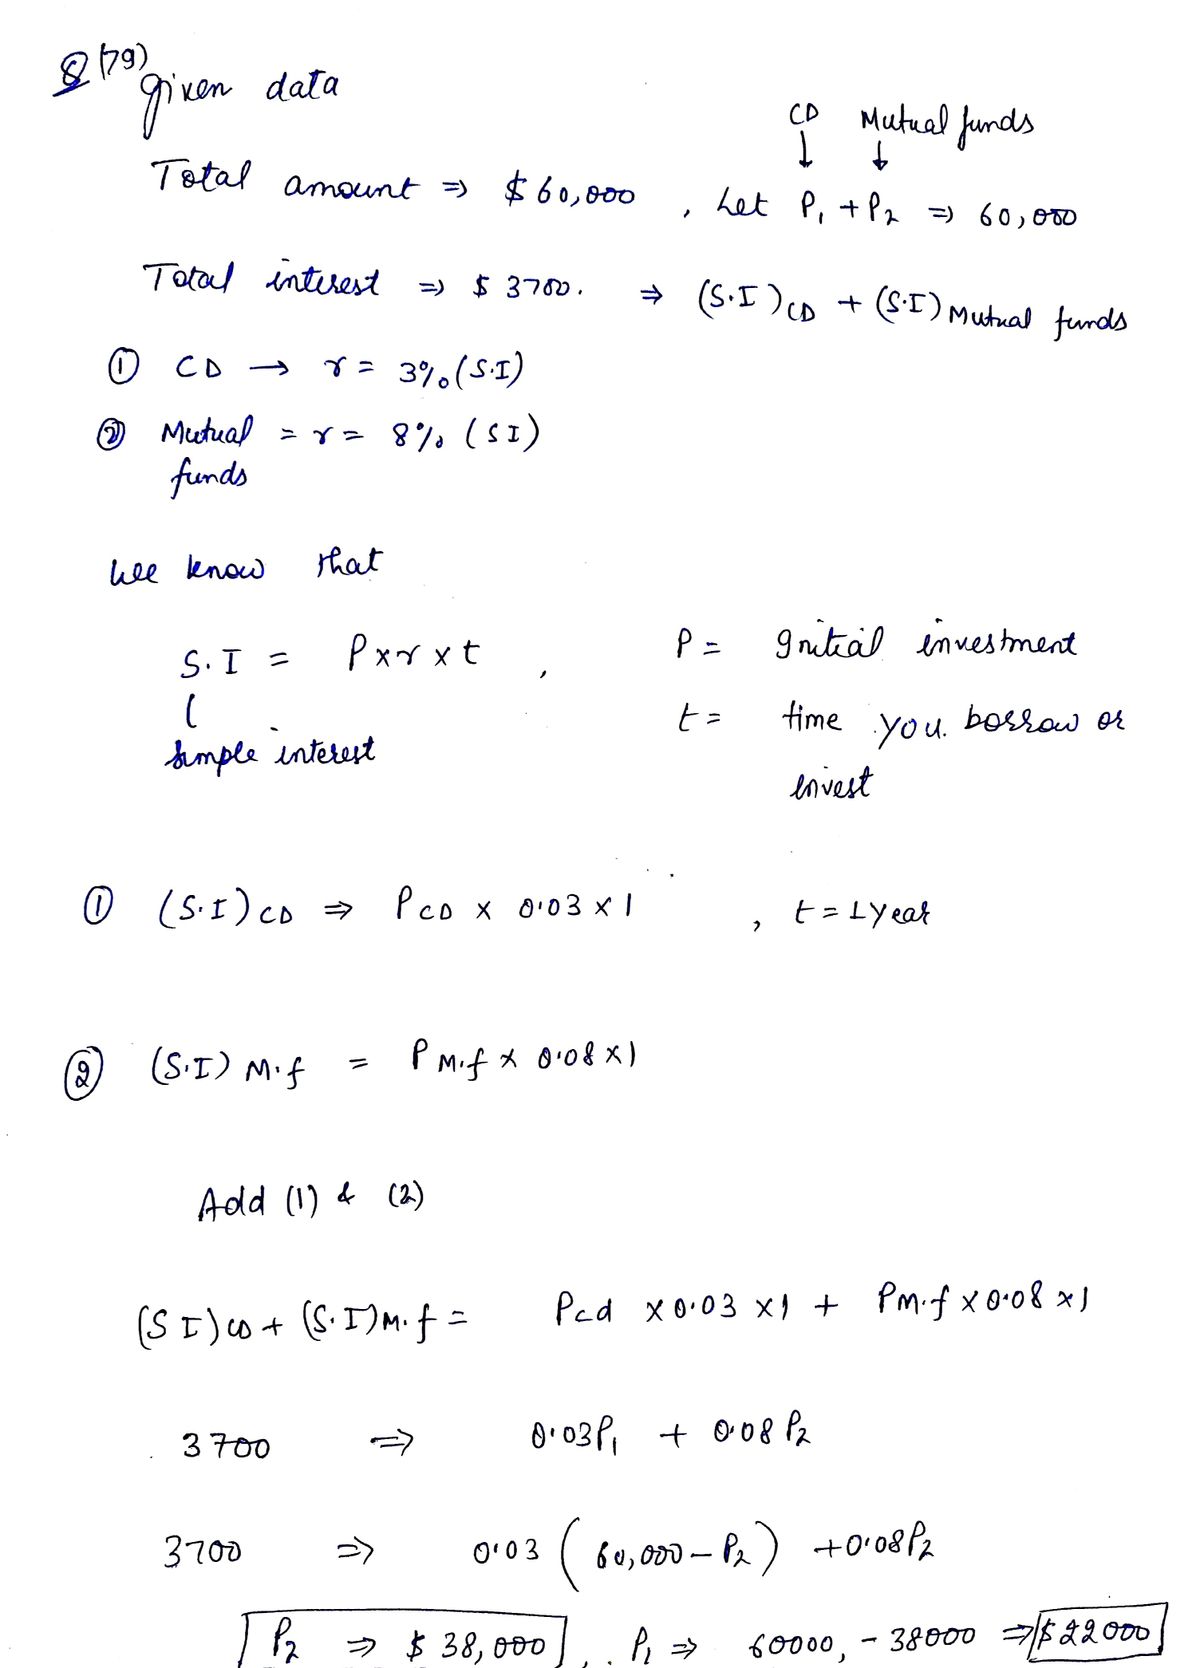 Q(79) given data
CD Mutual funds
↓ ↓
Total amount ⇒ $60,000 , Let P₁ + P₂ ⇒ 60,000
Total interest ⇒ $3700. ⇒ (S.I)CD + (S.I) Mutual funds
① CD → r = 3% (S.I)
② Mutual = r = 8% (SI)
funds
We know that
S.I = P×r×t , P = Initial investment
simple interest t = time you borrow or
invest
① (S.I)CD ⇒ PCD × 0.03 × 1 , t = 1 year
② (S.I) M.f = P M.f × 0.08 × 1
Add (1) & (2)
(S I)CD + (S.I)M.f = Pcd × 0.03 × 1 + PM.f × 0.08 × 1
3700 ⇒ 0.03P₁ + 0.08 P₂
3700 ⇒ 0.03 (60,000 – P₂) + 0.08P₂
P₂ ⇒ $38,000 , P₁ ⇒ 60000, - 38000 ⇒ $22000